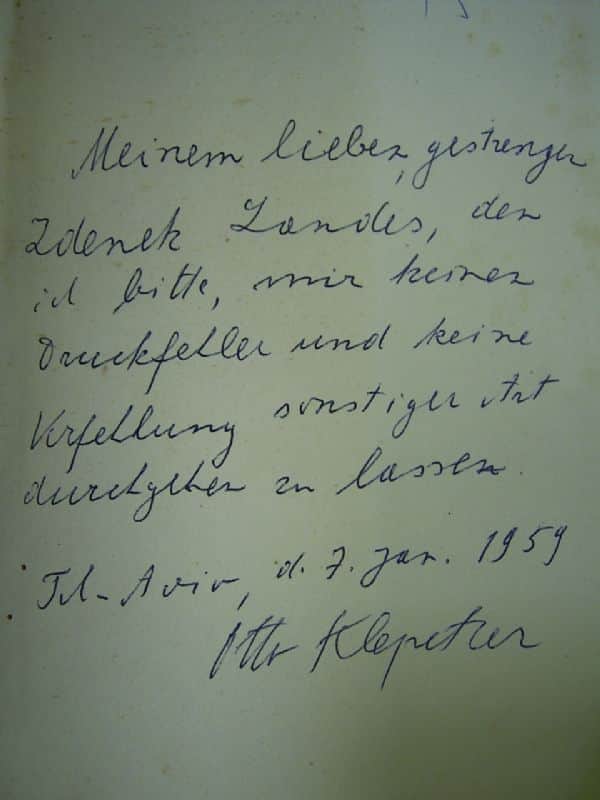 Meinem lieben, gestrengen
Zdenek Landes, den
ich bitte, mir keinen
Druckfehler und keine
Verfehlung sonstiger Art
durchgehen zu lassen.
Tel-Aviv, d. 7. Jan. 1959
Otto Klepetar